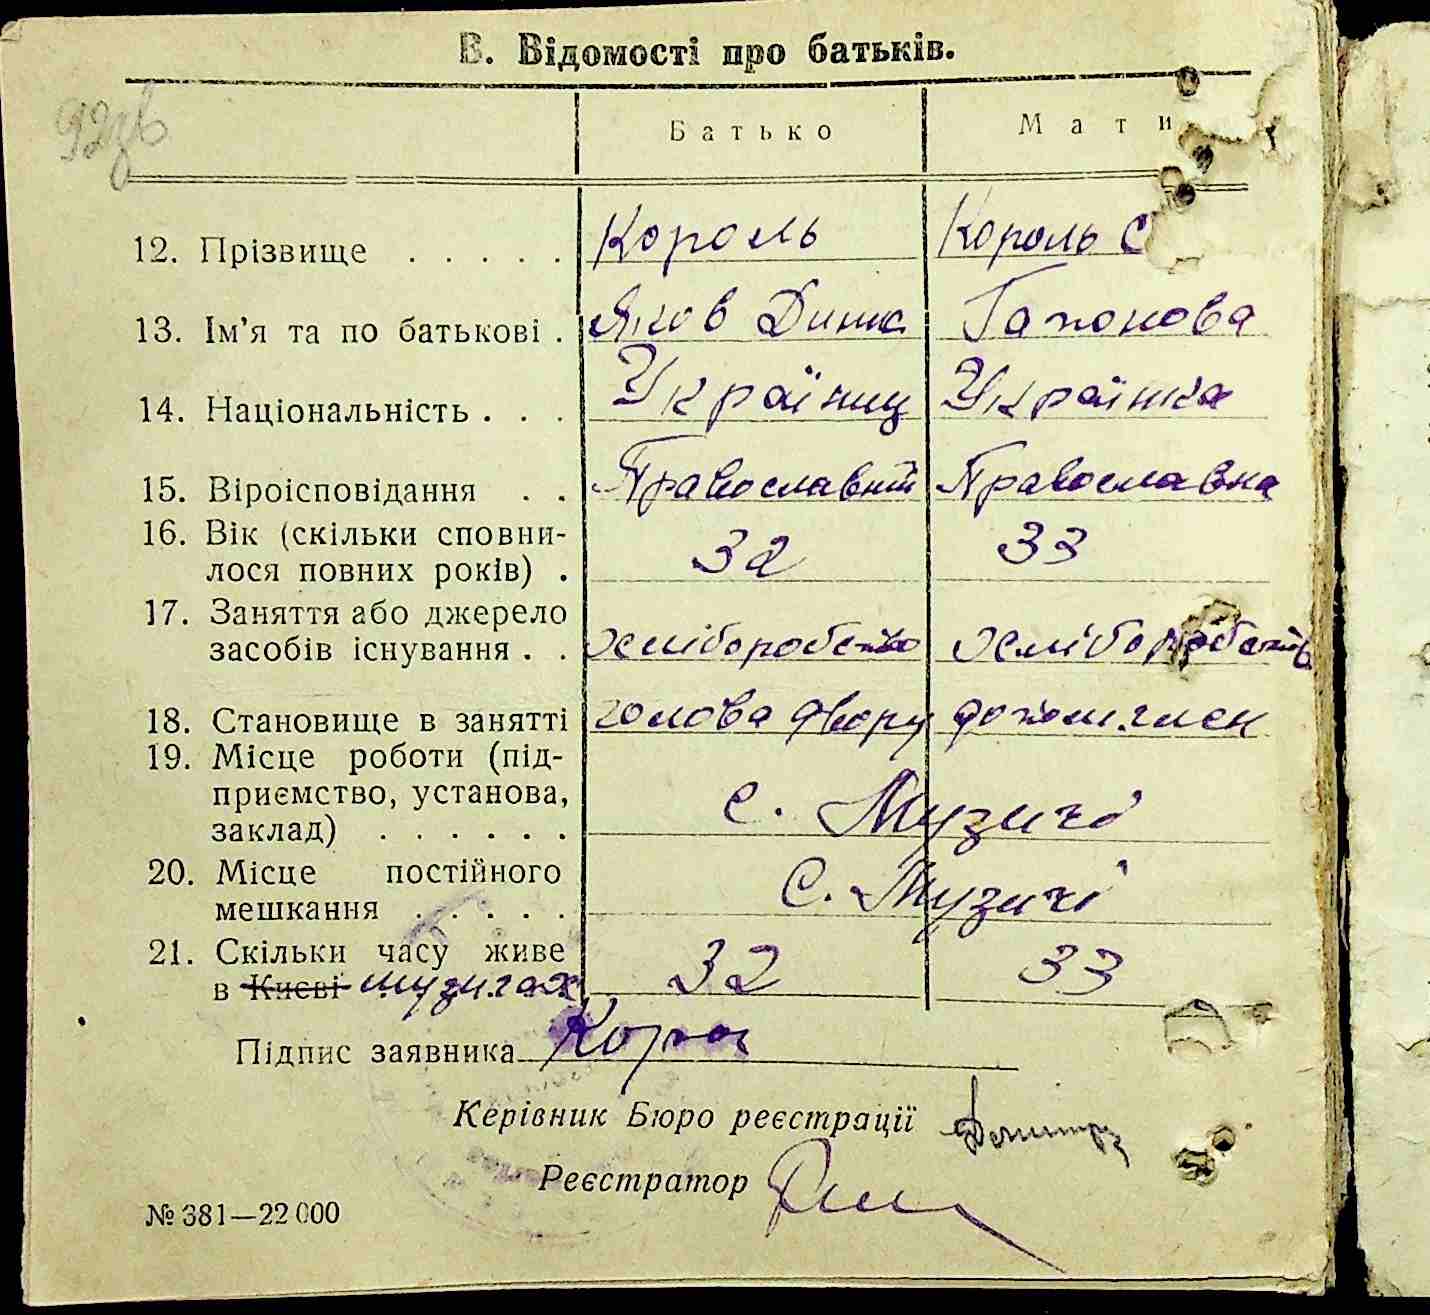 В. Відомості про батьків.
Батько Мати
12. Прізвище . . . . . Король Король С
13. Ім’я та по батькові . Яков Дини Гапонова
14. Національність . . . Українц Українка
15. Віроісповідання . . Православний Православна
16. Вік (скільки сповни-
лося повних років) . 32 33
17. Заняття або джерело
засобів існування . . хліборобство хліборобств
18. Становище в занятті голова двору допом. член
19. Місце роботи (під-
приємство, установа,
заклад) . . . . . . с. Музичі
20. Місце постійного
мешкання . . . . . С. Музичі
21. Скільки часу живе
в Києві Музичах 32 33
Підпис заявника Коро
Керівник Бюро реєстрації
Реєстратор
№ 381—22 000